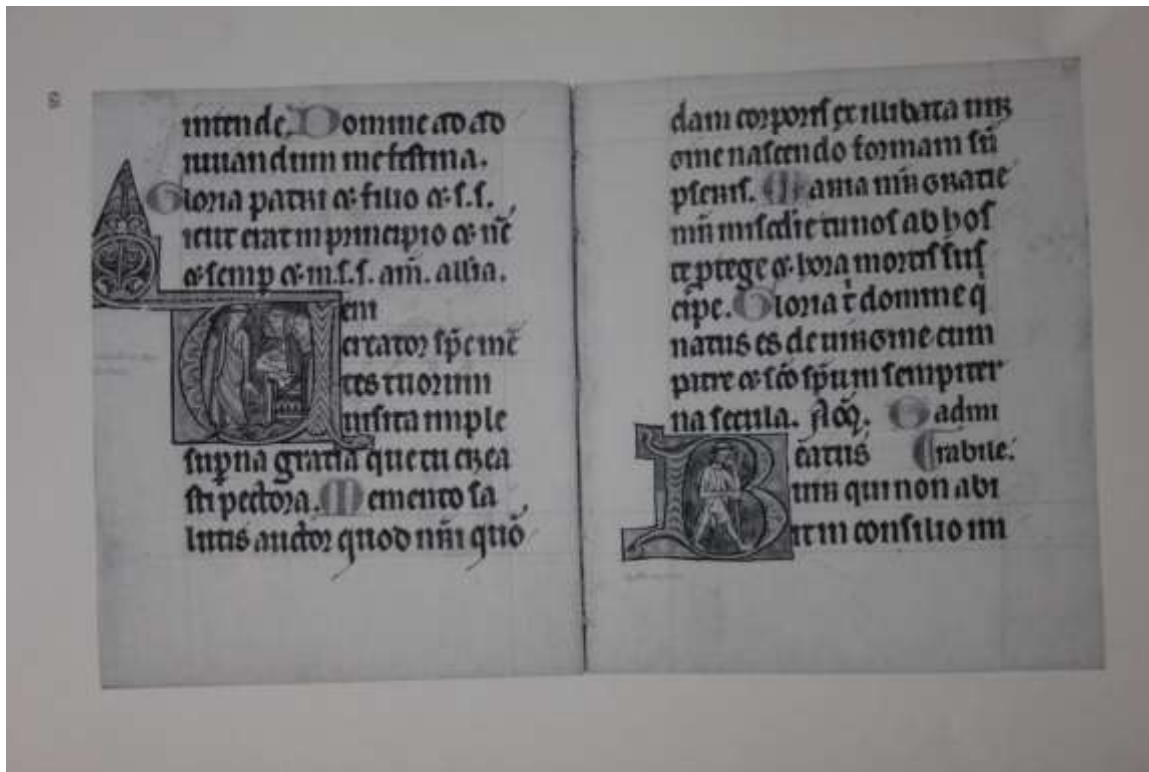 intende. Domine ad ad
iuuandum me festina.
Gloria patri & filio & s.s.
icut erat in principio & nc̄
& semp & in.s.s. am̄. all'ia.
eni
creator sp̄c m̄e
tes tuorum
uisita imple
sup̄na gratia que tu crea
sti pectora. Memento sa
lutis auctor quod nr̄i quō
dam corporis ex illibata uir
gine nascendo formam sū
pseris. Maria mr̄ gratie
mr̄ mis̄c̄die tu nos ab hos
te p̄tege & hora mortis sus
cipe. Gloria t̄ domine q
natus es de uirgine cum
patre & sc̄o sp̄u in sempiter
na secula. Añ. O admi
eatus rabile.
uir qui non abi
it in consilio im